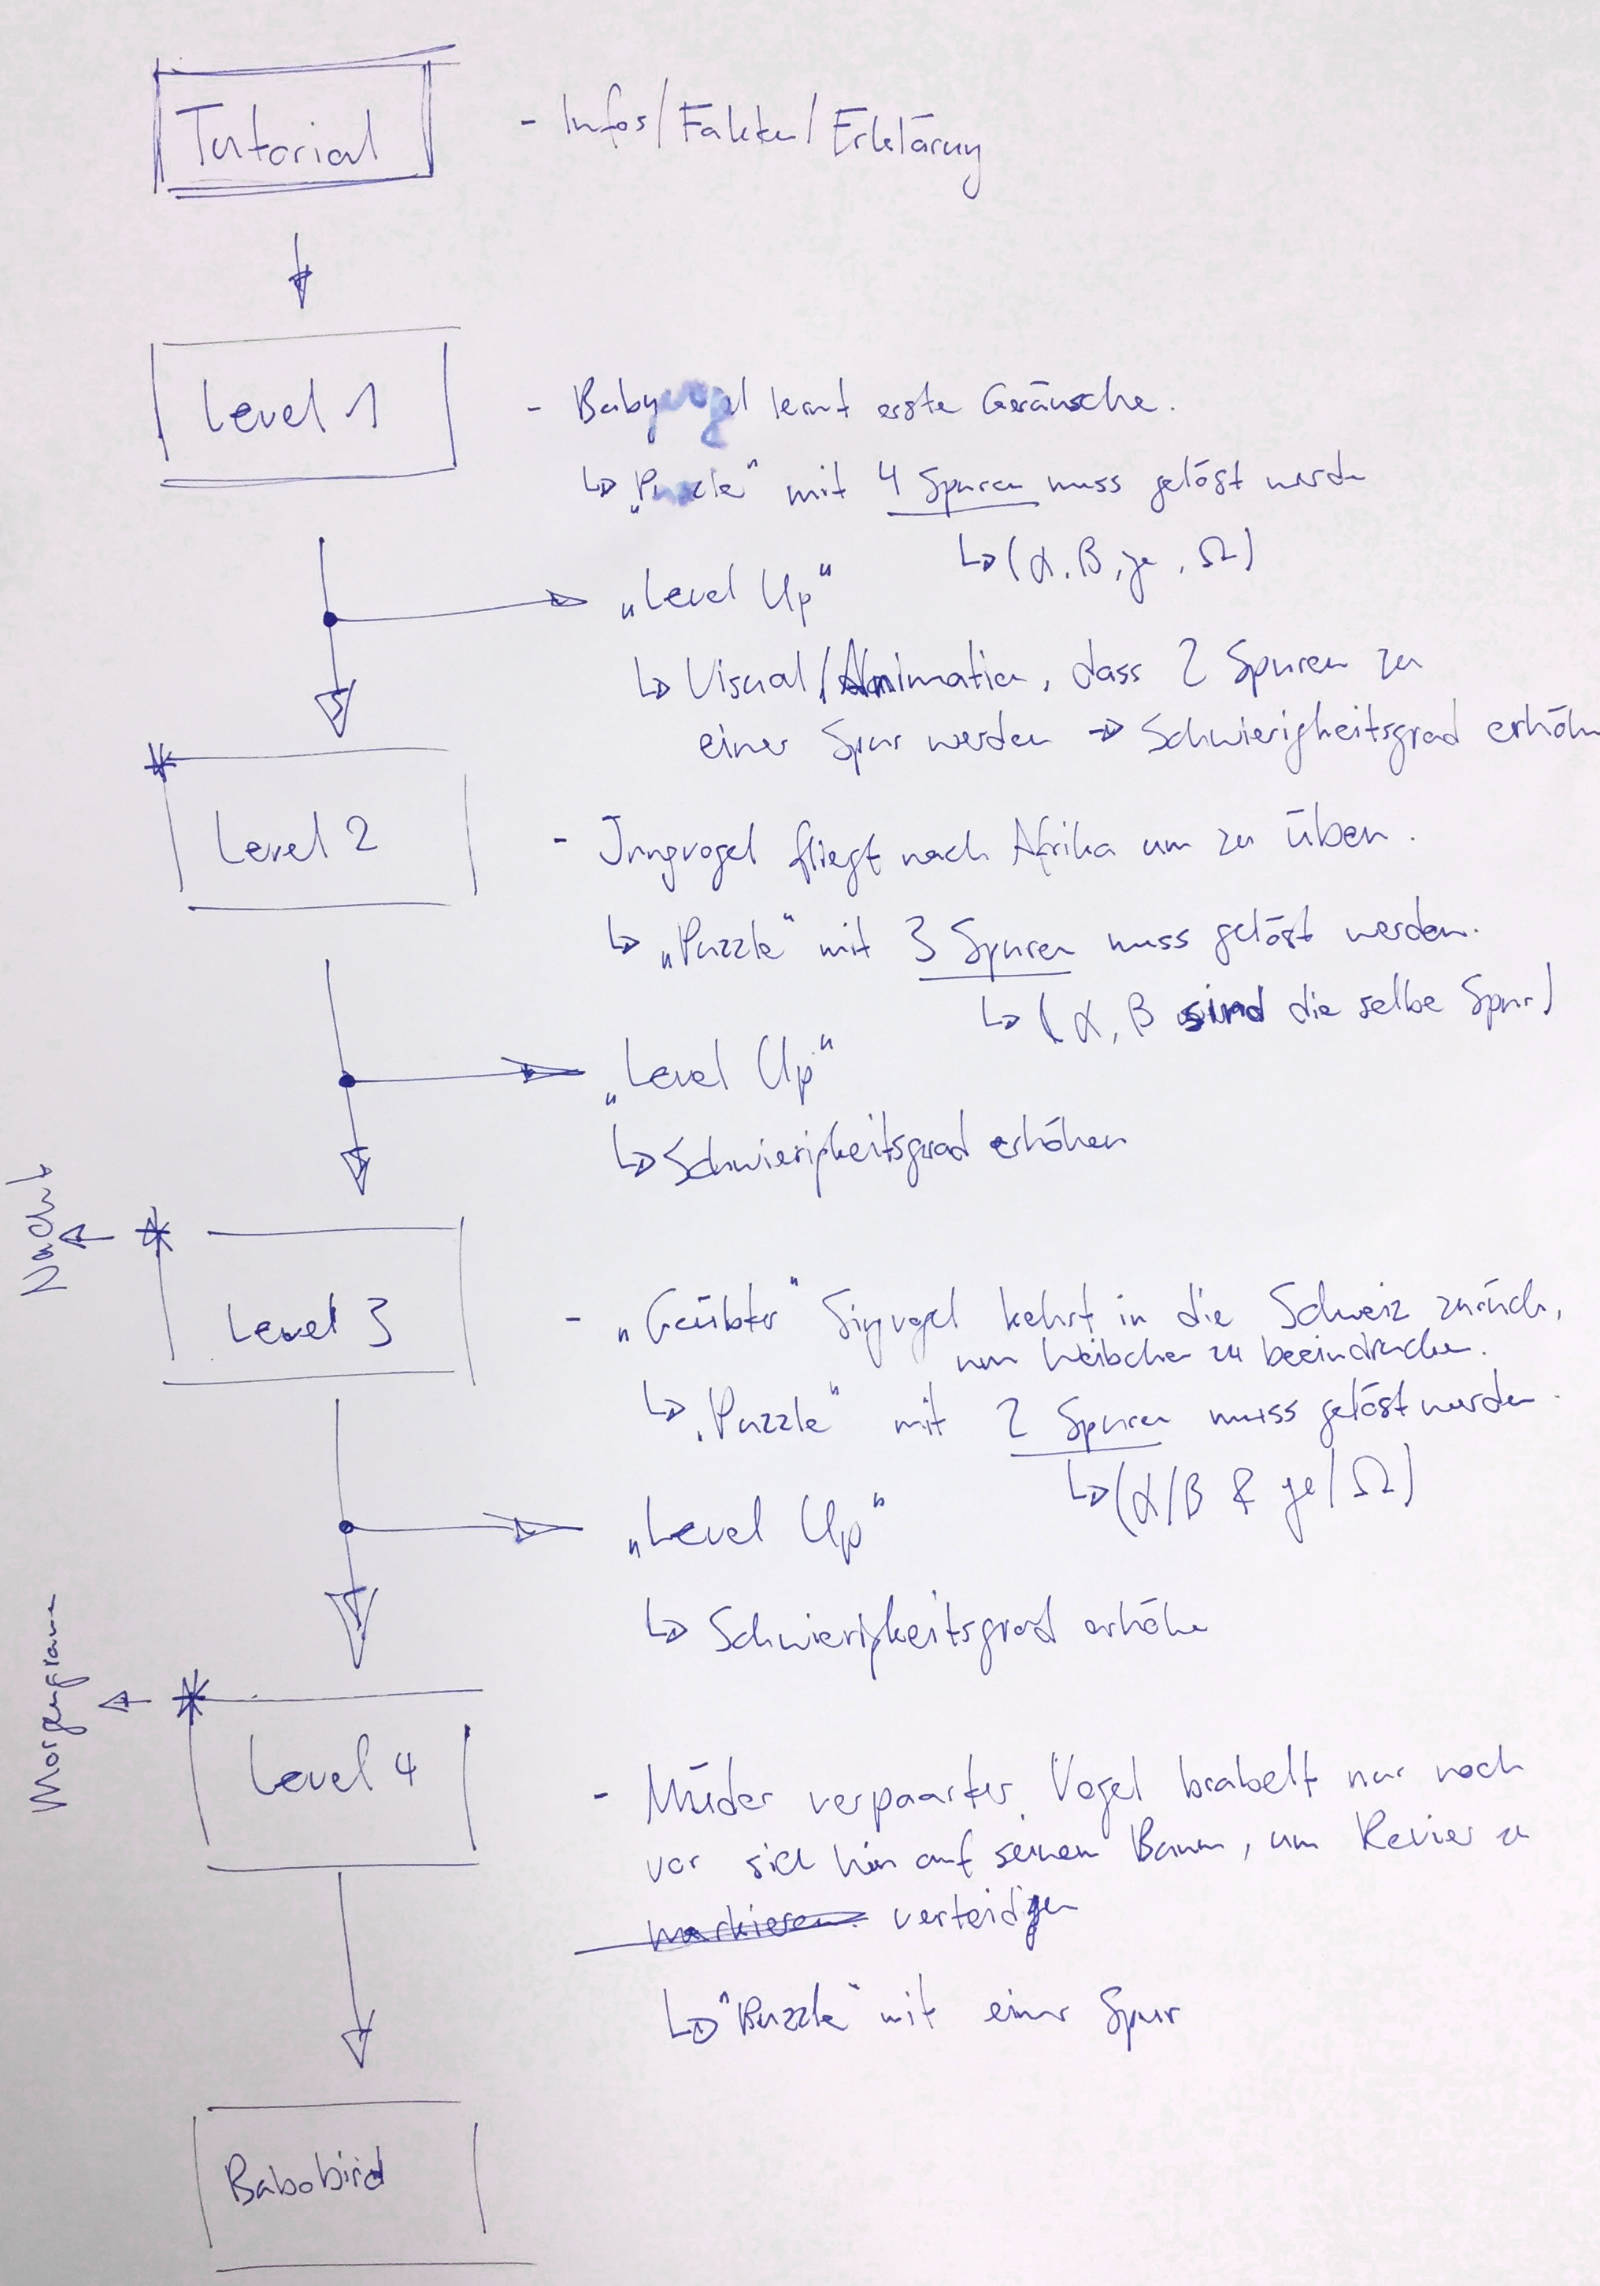 Tutorial
- Infos/Fakten/Erklärung
Level 1
- Babyvogel lernt erste Geräusche.
↳ „Puzzle“ mit 4 Spuren muss gelöst werden
↳ (α, β, γ, Ω)
„Level Up“
↳ Visual/Animation, dass 2 Spuren zu
einer Spur werden → Schwierigkeitsgrad erhöhen
Level 2
- Jungvogel fliegt nach Afrika um zu üben.
↳ „Puzzle“ mit 3 Spuren muss gelöst werden.
↳ (α, β sind die selbe Spur)
„Level Up“
↳ Schwierigkeitsgrad erhöhen
Nacht
Level 3
- „Geübter“ Singvogel kehrt in die Schweiz zurück,
um Weibchen zu beeindrucken.
↳ „Puzzle“ mit 2 Spuren muss gelöst werden.
↳ (α/β & γ/Ω)
„Level Up“
↳ Schwierigkeitsgrad erhöhen
Morgengrauen
Level 4
- Müder verpaarter Vogel brabelt nur noch
vor sich hin auf seinem Baum, um Revier zu
markieren verteidigen
↳ "Puzzle" mit einer Spur
Babobird